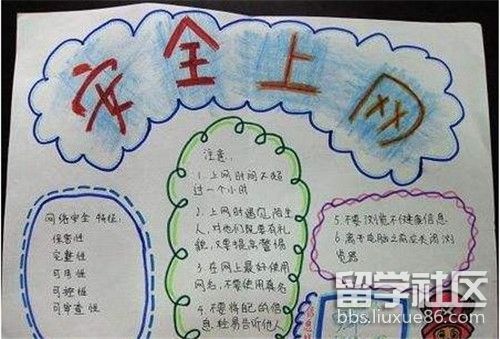 安全上网
网络安全 特征:
保密性
完整性
可用性
可控性
可审查性
注意:
1. 上网时间不超
过一个小时
2. 上网时遇见陌生
人,对他们既要有礼
貌,又要提高警惕
3. 在网上最好使用
网名,不要使用真名
4. 不要将自己的信
息轻易告诉他人
5. 不要浏览不健康信息
6. 离开电脑之前应关闭浏
览器
留学社区
bbs.liuxue86.com